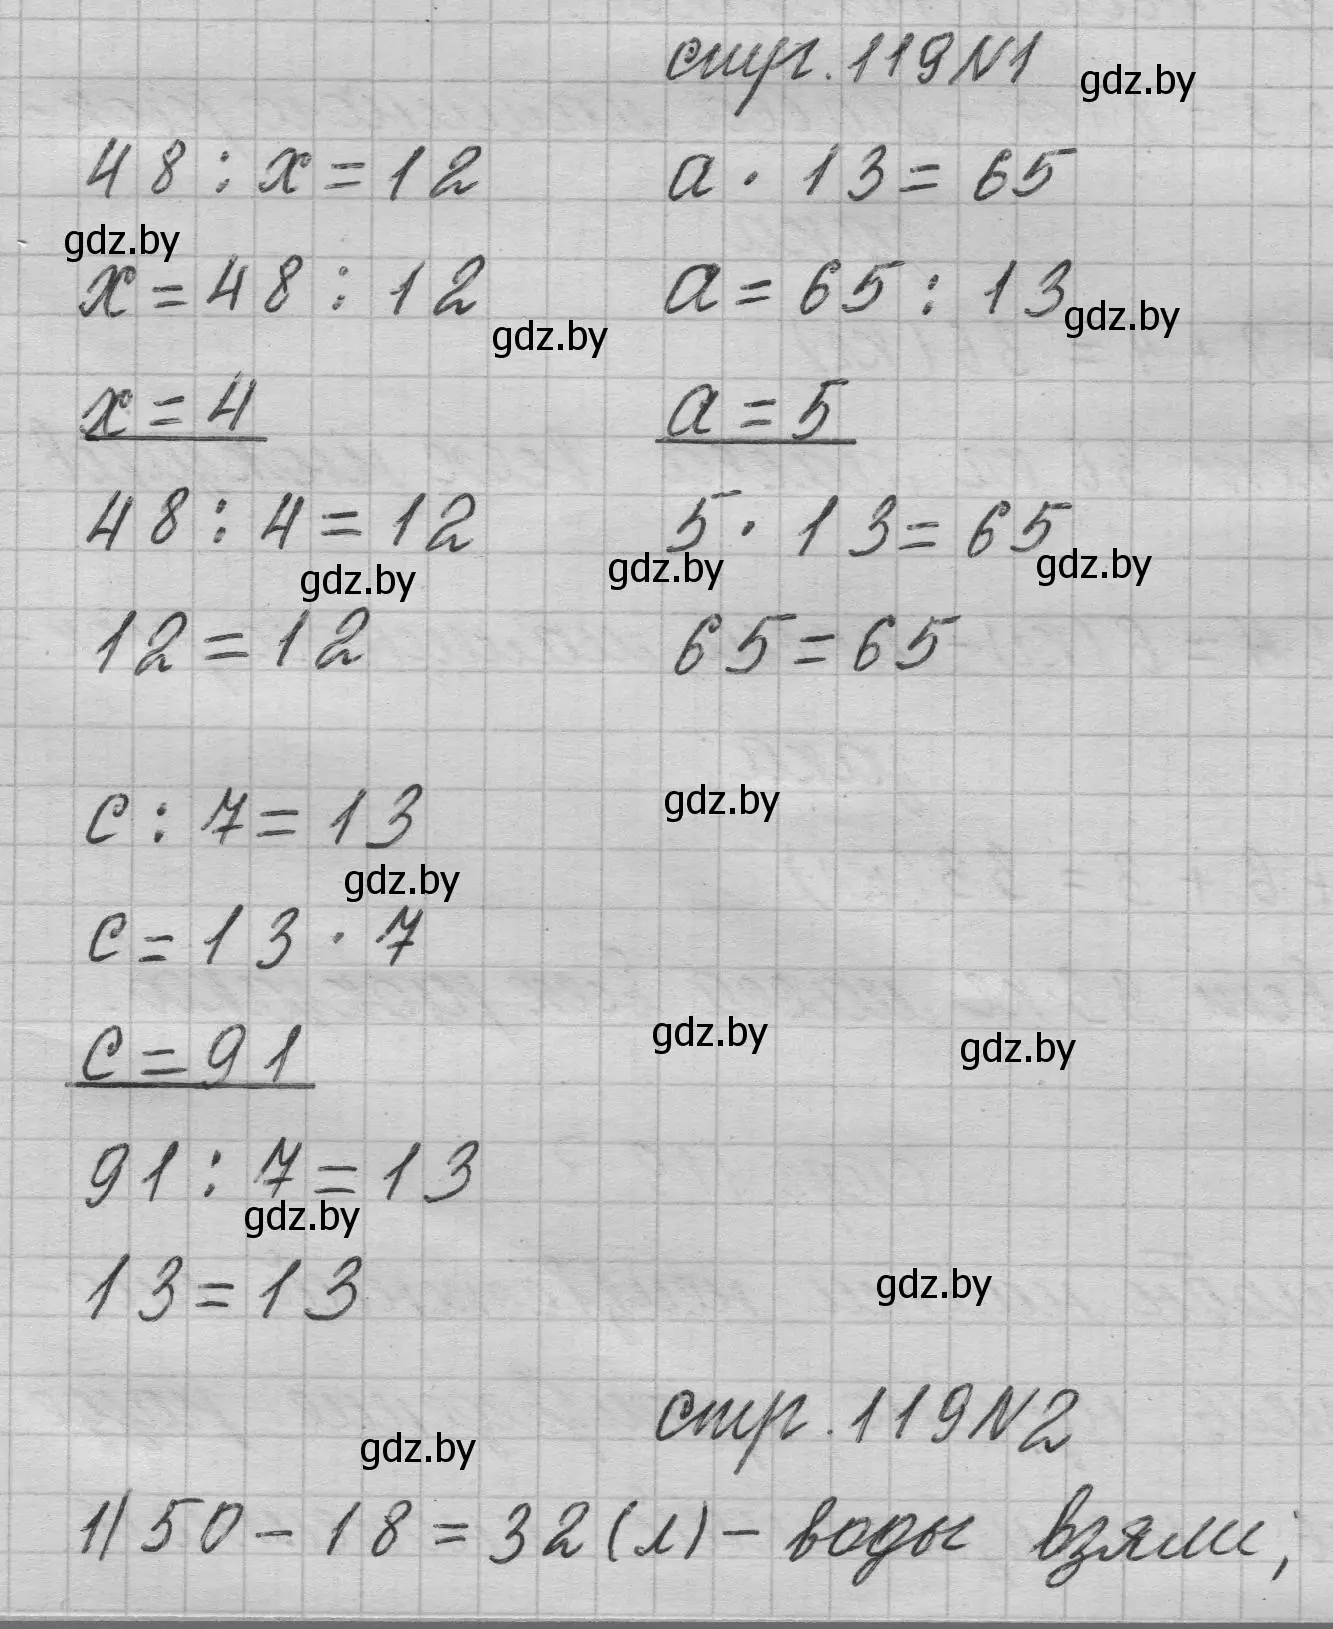 стр. 119 N 1
gdz.by
48 : x = 12
a · 13 = 65
gdz.by
x = 48 : 12
a = 65 : 13
gdz.by
gdz.by
x = 4
a = 5
48 : 4 = 12
5 · 13 = 65
gdz.by
gdz.by
gdz.by
12 = 12
65 = 65
c : 7 = 13
gdz.by
gdz.by
c = 13 · 7
c = 91
gdz.by
gdz.by
91 : 7 = 13
gdz.by
13 = 13
gdz.by
стр. 119 N 2
gdz.by
1) 50 - 18 = 32 (л) - воды взяли;